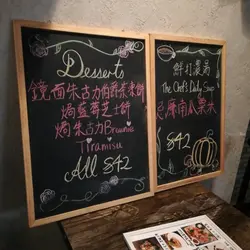 Desserts
鏡面朱古力伯爵茶凍餅
焗藍莓芝士餅
焗朱古力Brownie
Tiramisu
All $42
鮮打濃湯
The Chef's Daily Soup
南瓜粟米
$42